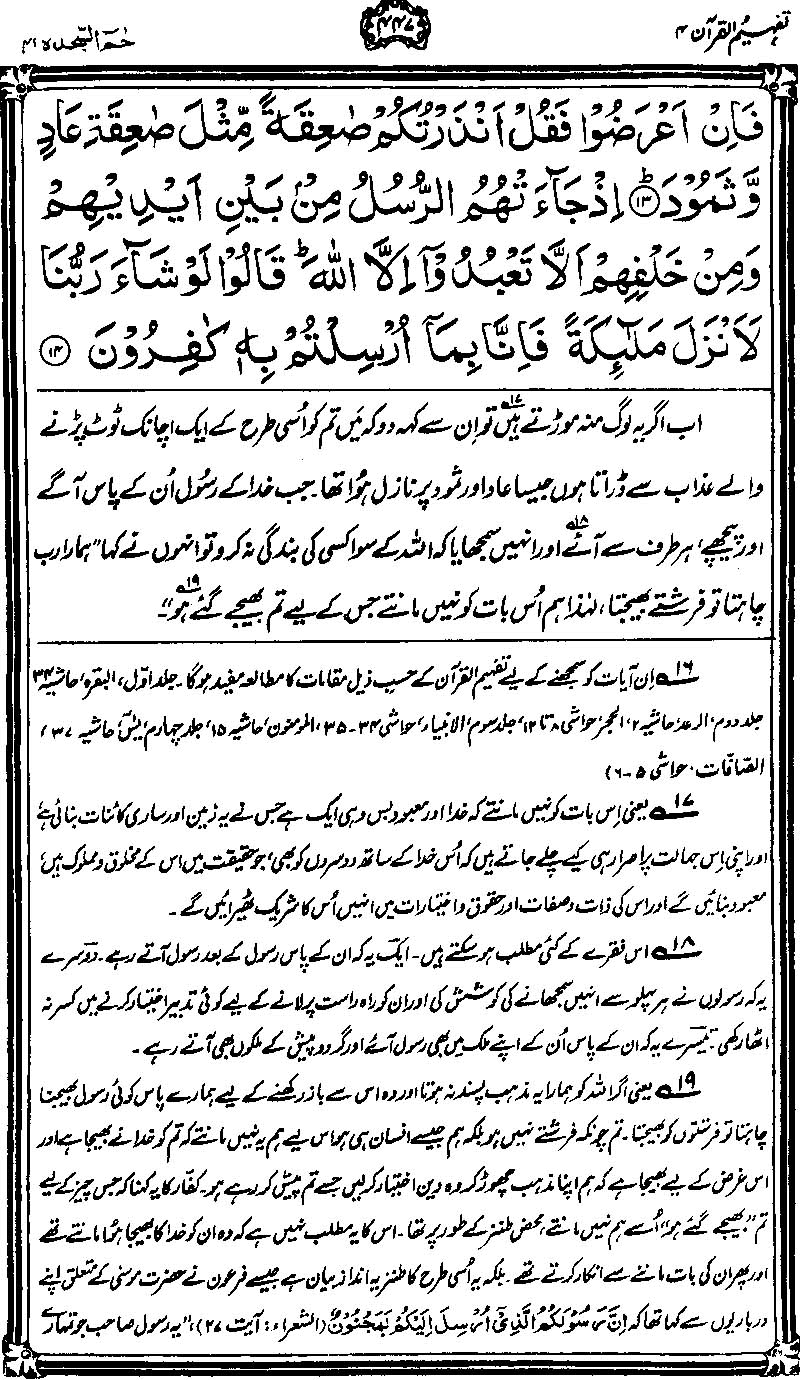 تفہیم القرآن ۴
۴۴۷
حٰمٓ السّجدہ ۴۱
فَاِنْ اَعْرَضُوْا فَقُلْ اَنْذَرْتُكُمْ صٰعِقَةً مِّثْلَ صٰعِقَةِ عَادٍ
وَّثَمُوْدَؕ۝۱۳ اِذْ جَآءَتْهُمُ الرُّسُلُ مِنْۢ بَيْنِ اَيْدِيْهِمْ
وَمِنْ خَلْفِهِمْ اَلَّا تَعْبُدُوْۤا اِلَّا اللّٰهَؕ قَالُوْا لَوْ شَآءَ رَبُّنَا
لَاَنْزَلَ مَلٰٓئِكَةً فَاِنَّا بِمَاۤ اُرْسِلْتُمْ بِهٖ كٰفِرُوْنَ ۝۱۴
اب اگر یہ لوگ منہ موڑتے ہیں۱۷ تو اِن سے کہہ دو کہ میں تم کو اُسی طرح کے ایک اچانک ٹوٹ پڑنے
والے عذاب سے ڈراتا ہوں جیسا عاد اور ثمود پر نازل ہُوا تھا۔ جب خدا کے رسول اُن کے پاس آگے
اور پیچھے، ہر طرف سے آئے۱۸ اور انہیں سمجھایا کہ اللہ کے سوا کسی کی بندگی نہ کرو تو انہوں نے کہا ”ہمارا رب
چاہتا تو فرشتے بھیجتا، لہٰذا ہم اُس بات کو نہیں مانتے جس کے لیے تم بھیجے گئے ہو“۔۱۹
۱۶ اِن آیات کو سمجھنے کے لیے تفہیم القرآن کے حسب ذیل مقامات کا مطالعہ مفید ہوگا۔ جلد اوّل، البقرہ، حاشیہ ۳۴
جلد دوم، الرعد، حاشیہ ۲، الحجر، حواشی ۸ تا ۱۲، جلد سوم، الانبیاء، حواشی ۳۴-۳۵، المومنون، حاشیہ ۱۵، جلد چہارم، یٰسٓ، حاشیہ ۳۷،
الصّافّات، حواشی ۵-۶)
۱۷ یعنی اِس بات کو نہیں مانتے کہ خدا اور معبود بس وہی ایک ہے جس نے یہ زمین اور ساری کائنات بنائی ہے
اور اپنی اِس جہالت پر اصرار ہی کیے چلے جاتے ہیں کہ اُس خدا کے ساتھ دوسروں کو بھی، جو حقیقت میں اس کے مخلوق و مملوک ہیں،
معبود بنائیں گے اور اس کی ذات و صفات اور حقوق و اختیارات میں انہیں اُس کا شریک ٹھیرائیں گے۔
۱۸ اس فقرے کے کئی مطلب ہو سکتے ہیں۔ ایک یہ کہ ان کے پاس رسول کے بعد رسول آتے رہے۔ دوسرے
یہ کہ رسولوں نے ہر پہلو سے انہیں سمجھانے کی کوشش کی اور ان کو راہ راست پر لانے کے لیے کوئی تدبیر اختیار کرنے میں کسر نہ
اٹھا رکھی۔ تیسرے یہ کہ ان کے پاس اُن کے اپنے ملک میں بھی رسول آئے اور گرد و پیش کے ملکوں میں بھی آتے رہے۔
۱۹ یعنی اگر اللہ کو ہمارا یہ مذہب پسند نہ ہوتا اور وہ اس سے باز رکھنے کے لیے ہمارے پاس کوئی رسول بھیجنا
چاہتا تو فرشتوں کو بھیجتا۔ تم چونکہ فرشتے نہیں ہو بلکہ ہم جیسے انسان ہی ہو اس لیے ہم یہ نہیں مانتے کہ تم کو خدا نے بھیجا ہے اور
اس غرض کے لیے بھیجا ہے کہ ہم اپنا مذہب چھوڑ کر وہ دین اختیار کرلیں جسے تم پیش کر رہے ہو۔ کفّار کا یہ کہنا کہ جس چیز کے لیے
تم ”بھیجے گئے ہو“ اُسے ہم نہیں مانتے، محض طنز کے طور پر تھا۔ اس کا یہ مطلب نہیں ہے کہ وہ ان کو خدا کا بھیجا ہُوا مانتے تھے
اور پھر ان کی بات ماننے سے انکار کرتے تھے۔ بلکہ یہ اُسی طرح کا طنزیہ انداز بیان ہے جیسے فرعون نے حضرت موسٰی کے متعلق اپنے
درباریوں سے کہا تھا کہ اِنَّ رَسُوْلَكُمُ الَّذِیْۤ اُرْسِلَ اِلَیْكُمْ لَمَجْنُوْنٌ (الشعراء: آیت ۲۷)، ”یہ رسول صاحب جو تمہارے